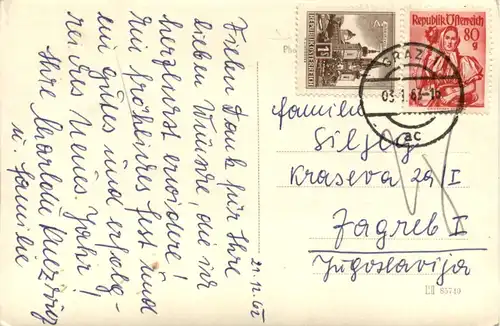 Vielen Dank für Ihre
lieben Wünsche, die ich
herzlichst erwidere!
Ein fröhliches Fest und
ein gutes und erfolg-
reiches Neues Jahr!
Ihre
u. familie
21.12.62
REPUBLIK ÖSTERREICH
1 S
Republik Österreich
80
g
GRAZ
ac
familien
Kraseva 29/I
Zagreb I
Jugoslavija
65740